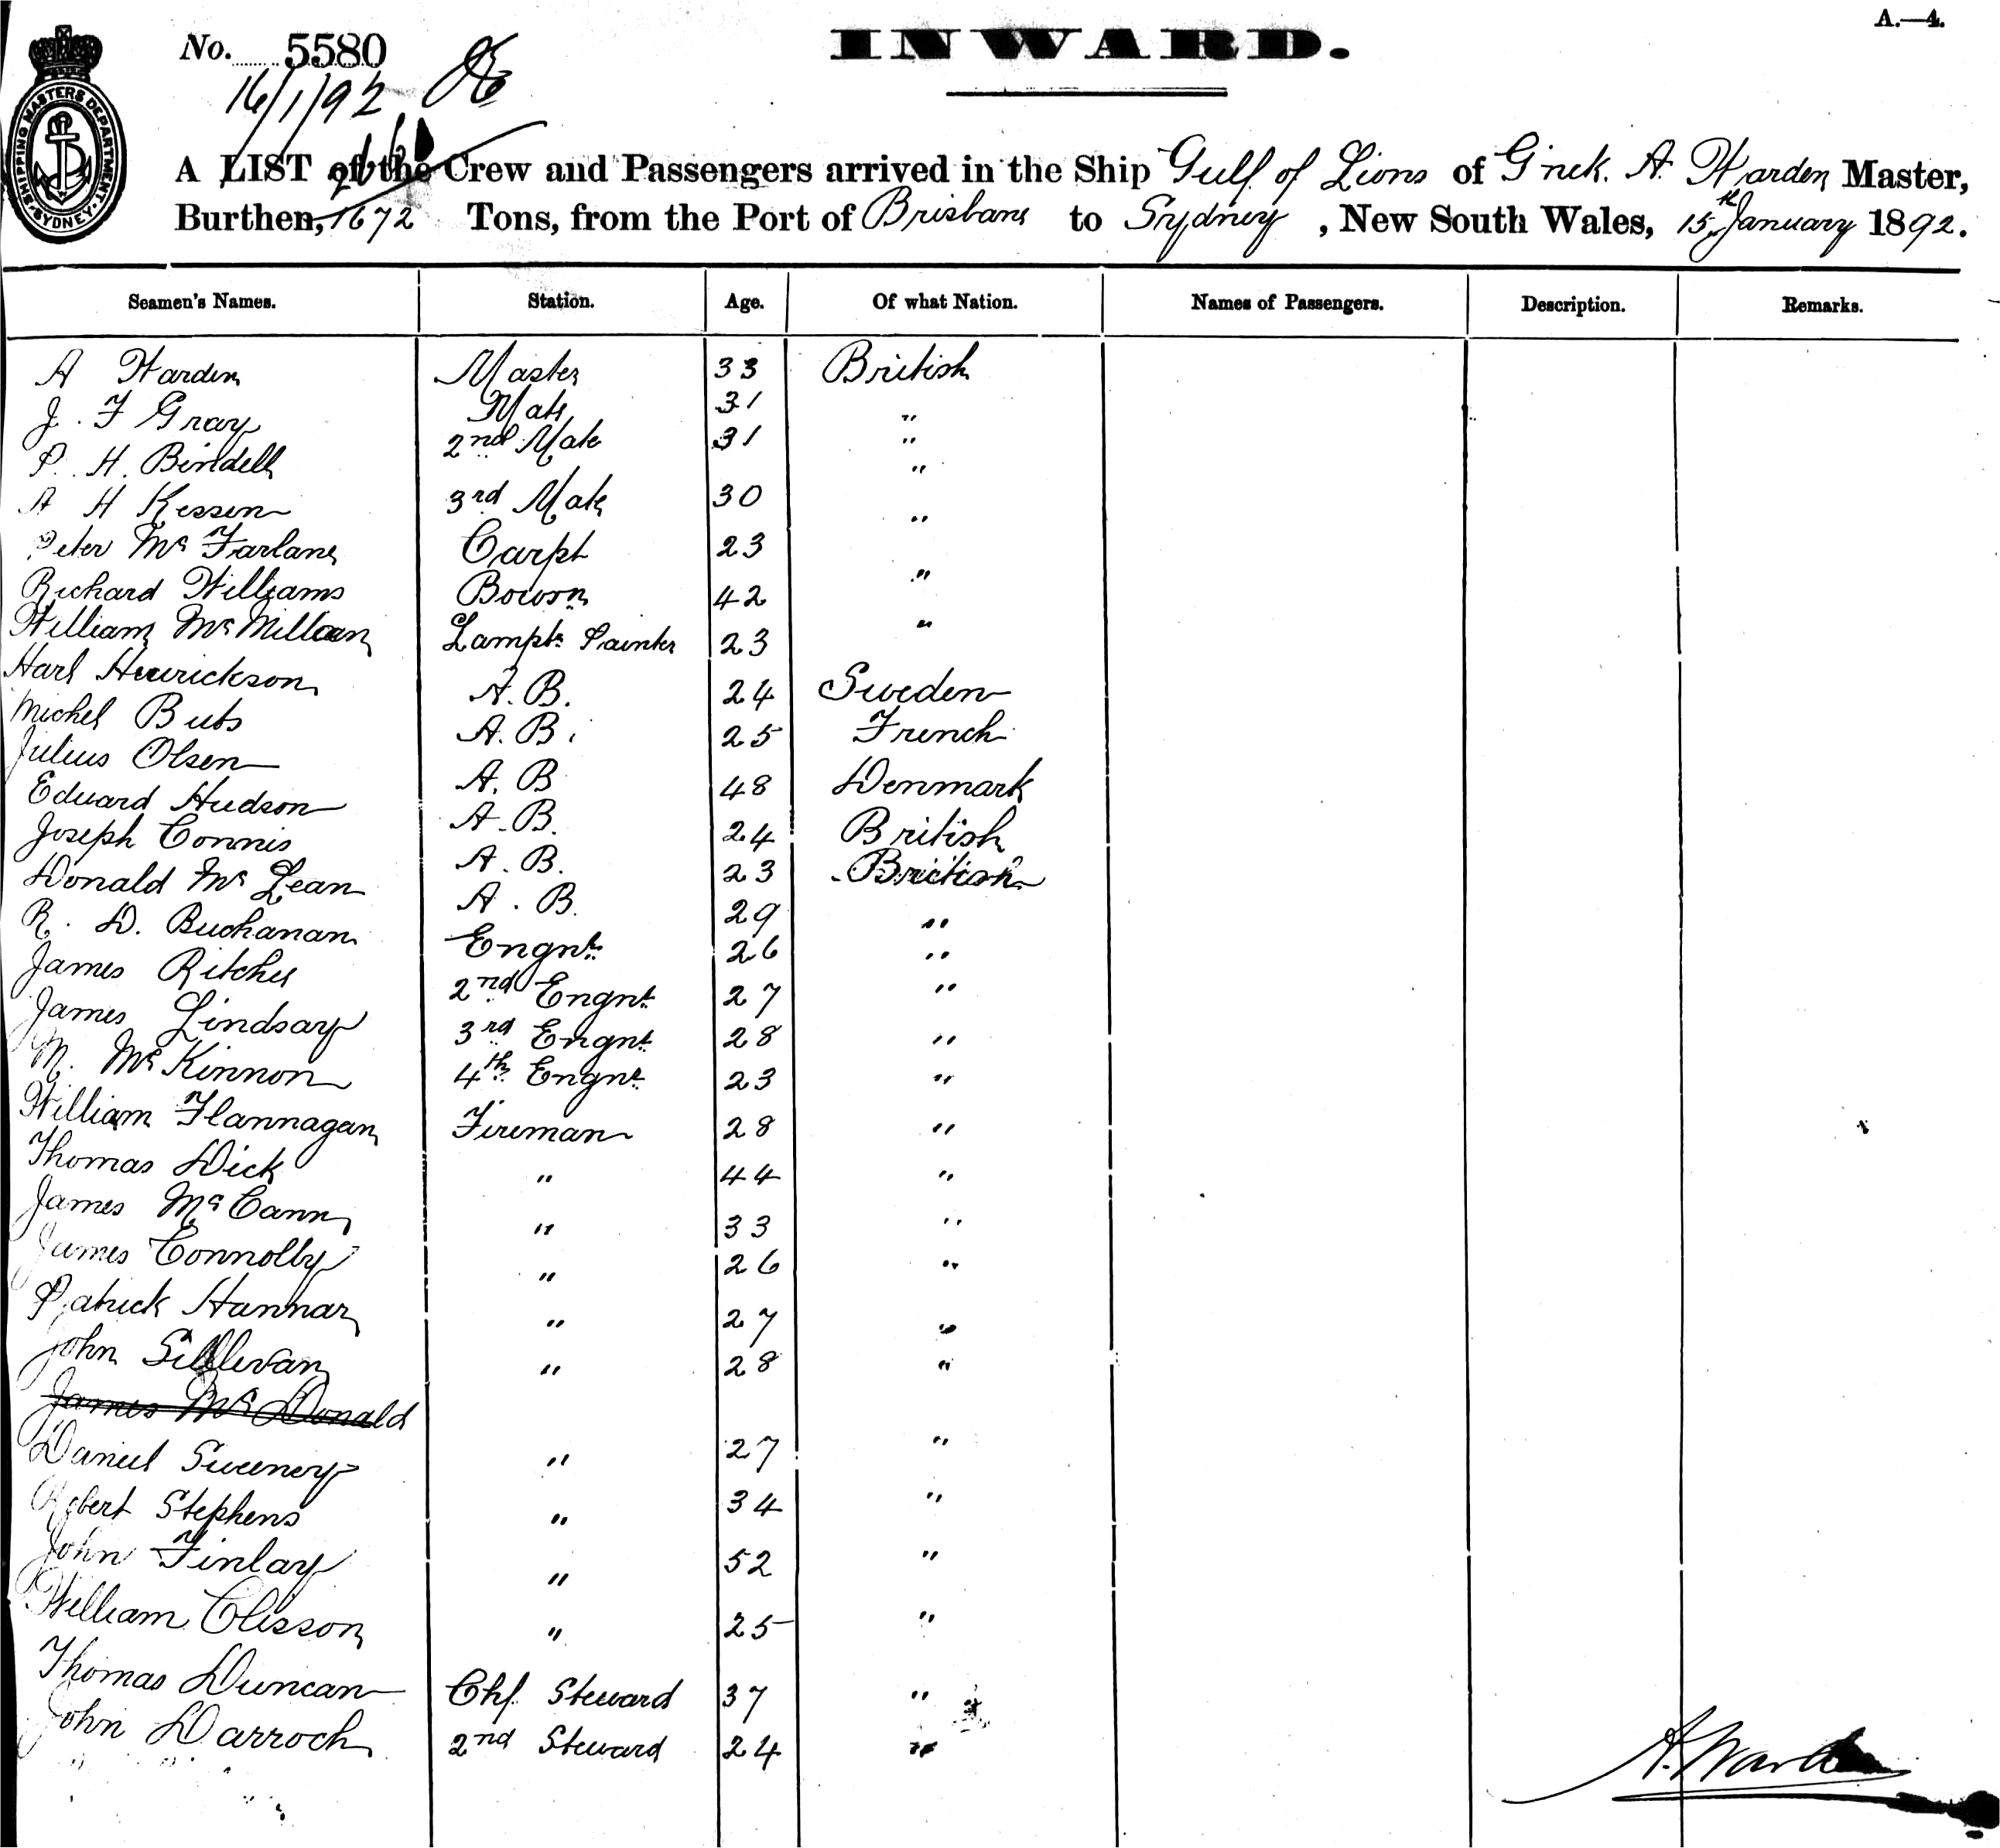 A.—4.
No. 5580
INWARD.
16/1/92
SHIPPING MASTERS DEPARTMENT. SYDNEY.
A LIST of the Crew and Passengers arrived in the Ship Gulf of Lions of Gnck. A. Harden Master,
Burthen, 1672 Tons, from the Port of Brisbane to Sydney, New South Wales, 15th January 1892.
Seamen's Names. Station. Age. Of what Nation. Names of Passengers. Description. Remarks.
A Harden Master 33 British
J. F Gray Mate 31 "
P. H. Bindell 2nd Mate 31 "
A H Kessen 3rd Mate 30 "
Peter McFarlane Carpt 23 "
Richard Williams Bowsn 42 "
William McMillan Lampt. Painter 23 "
Karl Henrickson A.B. 24 Sweden
Michel Buts A.B. 25 French
Julius Olsen A.B 48 Denmark
Edward Hudson A.B. 24 British
Joseph Connis A.B. 23 British
Donald McLean A.B. 29 "
R. D. Buchanan Engnr. 26 "
James Ritchie 2nd Engnr. 27 "
James Lindsay 3rd Engnr. 28 "
M. McKinnon 4th Engnr. 23 "
William Flannagan Fireman 28 "
Thomas Dick " 44 "
James McCann " 33 "
James Connolly " 26 "
Patrick Hannar " 27 "
John Sullivan " 28 "
James McDonald
Daniel Sweeney " 27 "
Robert Stephens " 34 "
John Finlay " 52 "
William Clisson " 25 "
Thomas Duncan Chf. Steward 37 "
John Darroch 2nd Steward 24 "